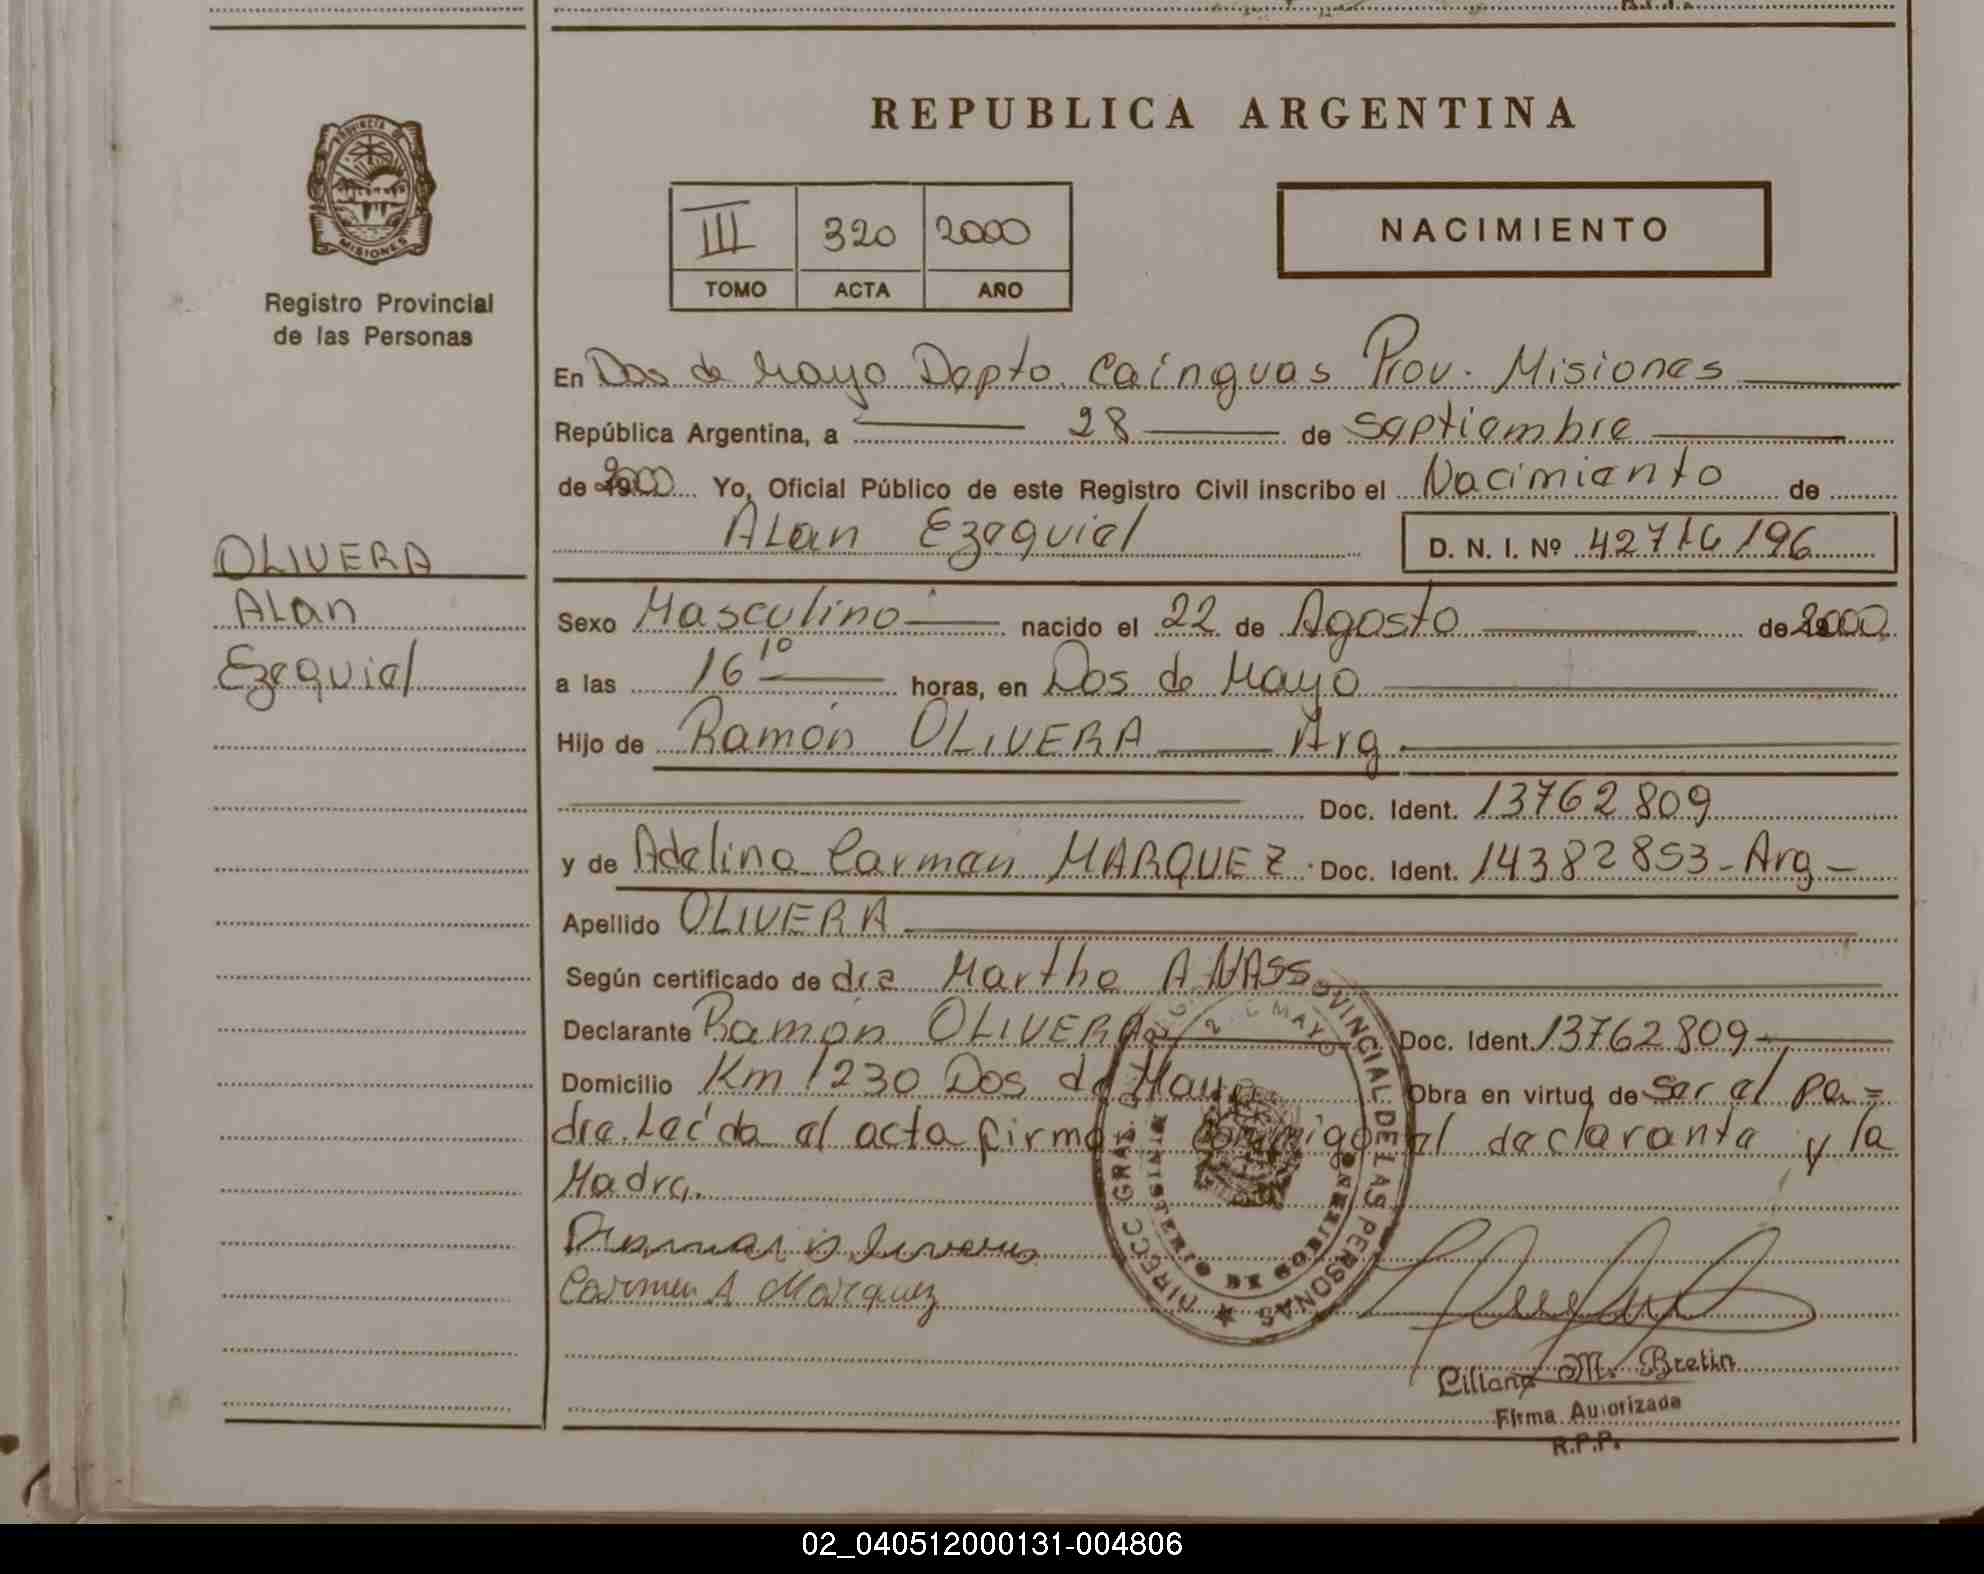 REPUBLICA ARGENTINA
PROVINCIA DE
MISIONES
Registro Provincial
de las Personas
III 320 2000
TOMO ACTA AÑO
NACIMIENTO
En Dos de Mayo Depto. Cainguas Prov. Misiones
República Argentina, a 28 de Septiembre
de 2000 Yo, Oficial Público de este Registro Civil inscribo el Nacimiento de
Alan Ezequiel D. N. I. Nº 42716196
OLIVERA
Alan
Ezequiel
Sexo Masculino nacido el 22 de Agosto de 2000
a las 16 10 horas, en Dos de Mayo
Hijo de Ramón OLIVERA Arg
Doc. Ident. 13762809
y de Adelina Carmen MARQUEZ Doc. Ident. 14382853 - Arg -
Apellido OLIVERA
Según certificado de dra Martha A. NASS
Declarante Ramón OLIVERA Doc. Ident. 13762809
Domicilio Km 1230 Dos de Mayo Obra en virtud de ser el pa=
dre. Leída el acta firma conmigo el declarante y la
Madre.
Carmen A Marquez
DIRECC. GRAL. PROVINCIAL DE LAS PERSONAS
MINISTERIO DE GOBIERNO
Liliana M. Bretin
Firma Autorizada
R.P.P.
02_040512000131-004806